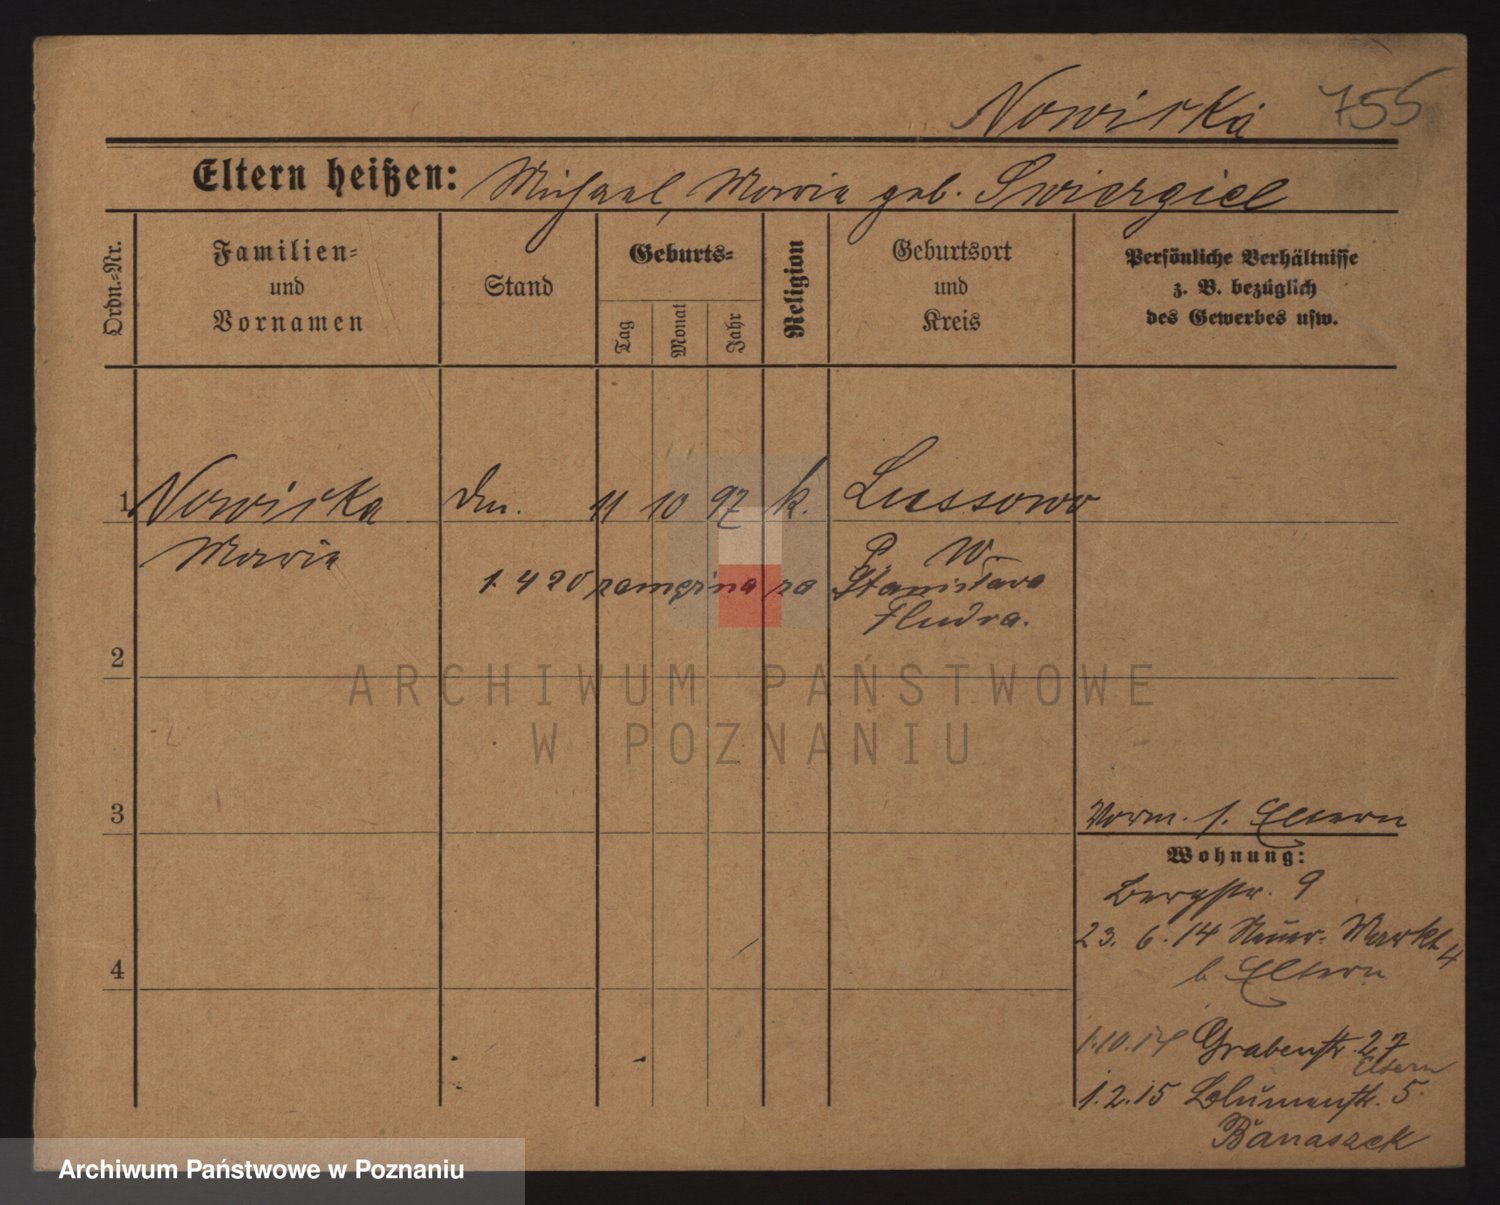 Nowicka 755
Eltern heißen: Michael, Marie geb. Swiergiel
Ordn.-Nr.
Familien-
und
Vornamen
Stand
Geburts-
Tag
Monat
Jahr
Religion
Geburtsort
und
Kreis
Persönliche Verhältnisse
z. B. bezüglich
des Gewerbes usw.
1 Nowicka 11 10 97 k. Lussowo
Marie P. W.
1. 4 20 za Stanisława
Fludra.
2
ARCHIWUM PAŃSTWOWE
W POZNANIU
3
Vorm. s. Eltern
Wohnung:
Bergstr. 9
23. 6. 14 Neuer-Markt 4
b Eltern
1.10.14 Grabenstr. 27
Eltern
1.2.15 Blumenstr. 5.
Banaszek
4
Archiwum Państwowe w Poznaniu